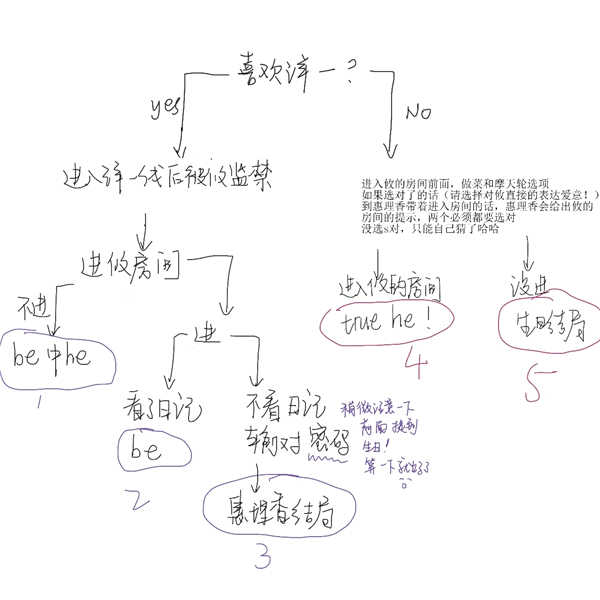 喜欢泽一?
yes
NO
进入泽一线后被攸监禁
进入攸的房间前面，做菜和摩天轮选项
如果选对了的话（请选择对攸直接的表达爱意！）
到惠理香带着进入房间的话，惠理香会给出攸的
房间的提示，两个必须都要选对
没选s对，只能自己猜了哈哈
进攸房间
不进
进
be中he
1
看了日记
be
2
不看日记
输对密码
稍微注意一下
前面提到
生日!
算一下就出了
惠理香结局
3
进入攸的房间
true he!
4
没进
生日结局
5